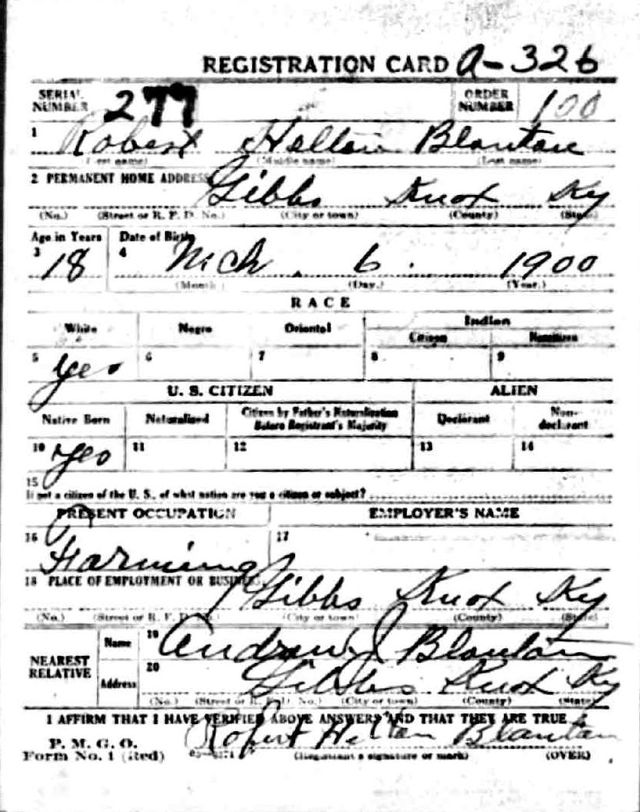 REGISTRATION CARD A-326
SERIAL NUMBER 277 ORDER NUMBER 100
1 Robert Helton Blanton
(First name) (Middle name) (Last name)
2 PERMANENT HOME ADDRESS Gibbs Knox Ky
(No.) (Street or R. F. D. No.) (City or town) (County) (State)
Age in Years Date of Birth
3 18 4 Mch. 6. 1900
(Month) (Day.) (Year.)
RACE
White Negro Oriental Indian
Citizen Noncitizen
5 Yes 6 7 8 9
U. S. CITIZEN ALIEN
Native Born Naturalized Citizen by Father's Naturalization Before Registrant's Majority Declarant Non-declarant
10 Yes 11 12 13 14
15 If not a citizen of the U. S., of what nation are you a citizen or subject?
PRESENT OCCUPATION EMPLOYER'S NAME
16 Farming 17
18 PLACE OF EMPLOYMENT OR BUSINESS Gibbs Knox Ky
(No.) (Street or R. F. D. No.) (City or town) (County) (State)
NEAREST RELATIVE Name 19 Andrew J Blanton
Address 20 Gibbs Knox Ky
(No.) (Street or R. F. D. No.) (City or town) (County) (State)
I AFFIRM THAT I HAVE VERIFIED ABOVE ANSWERS AND THAT THEY ARE TRUE
P. M. G. O.
Form No. 1 (Red) Robert Helton Blanton
(Registrant's signature or mark) (OVER)